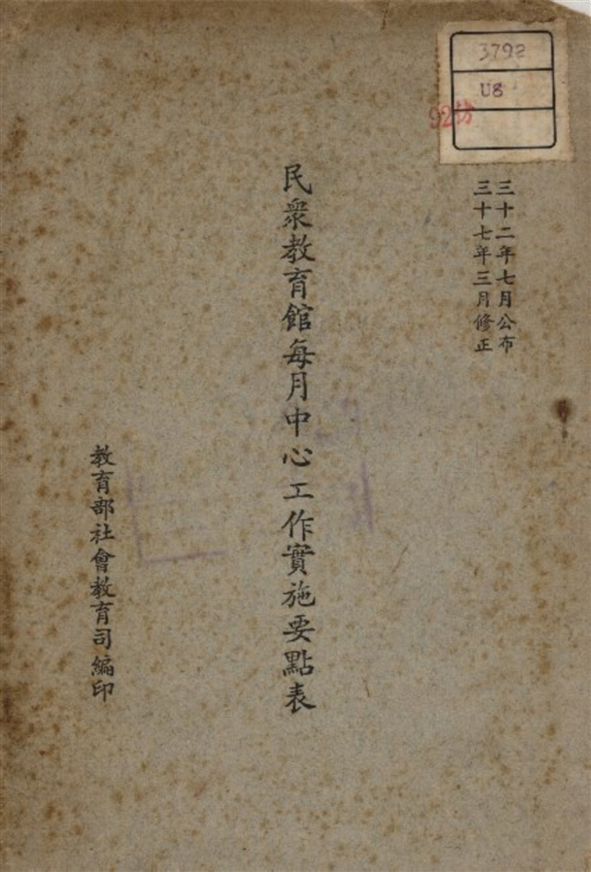 3792
U8
三十二年七月公布
三十七年三月修正
民衆教育館每月中心工作實施要點表
教育部社會教育司編印